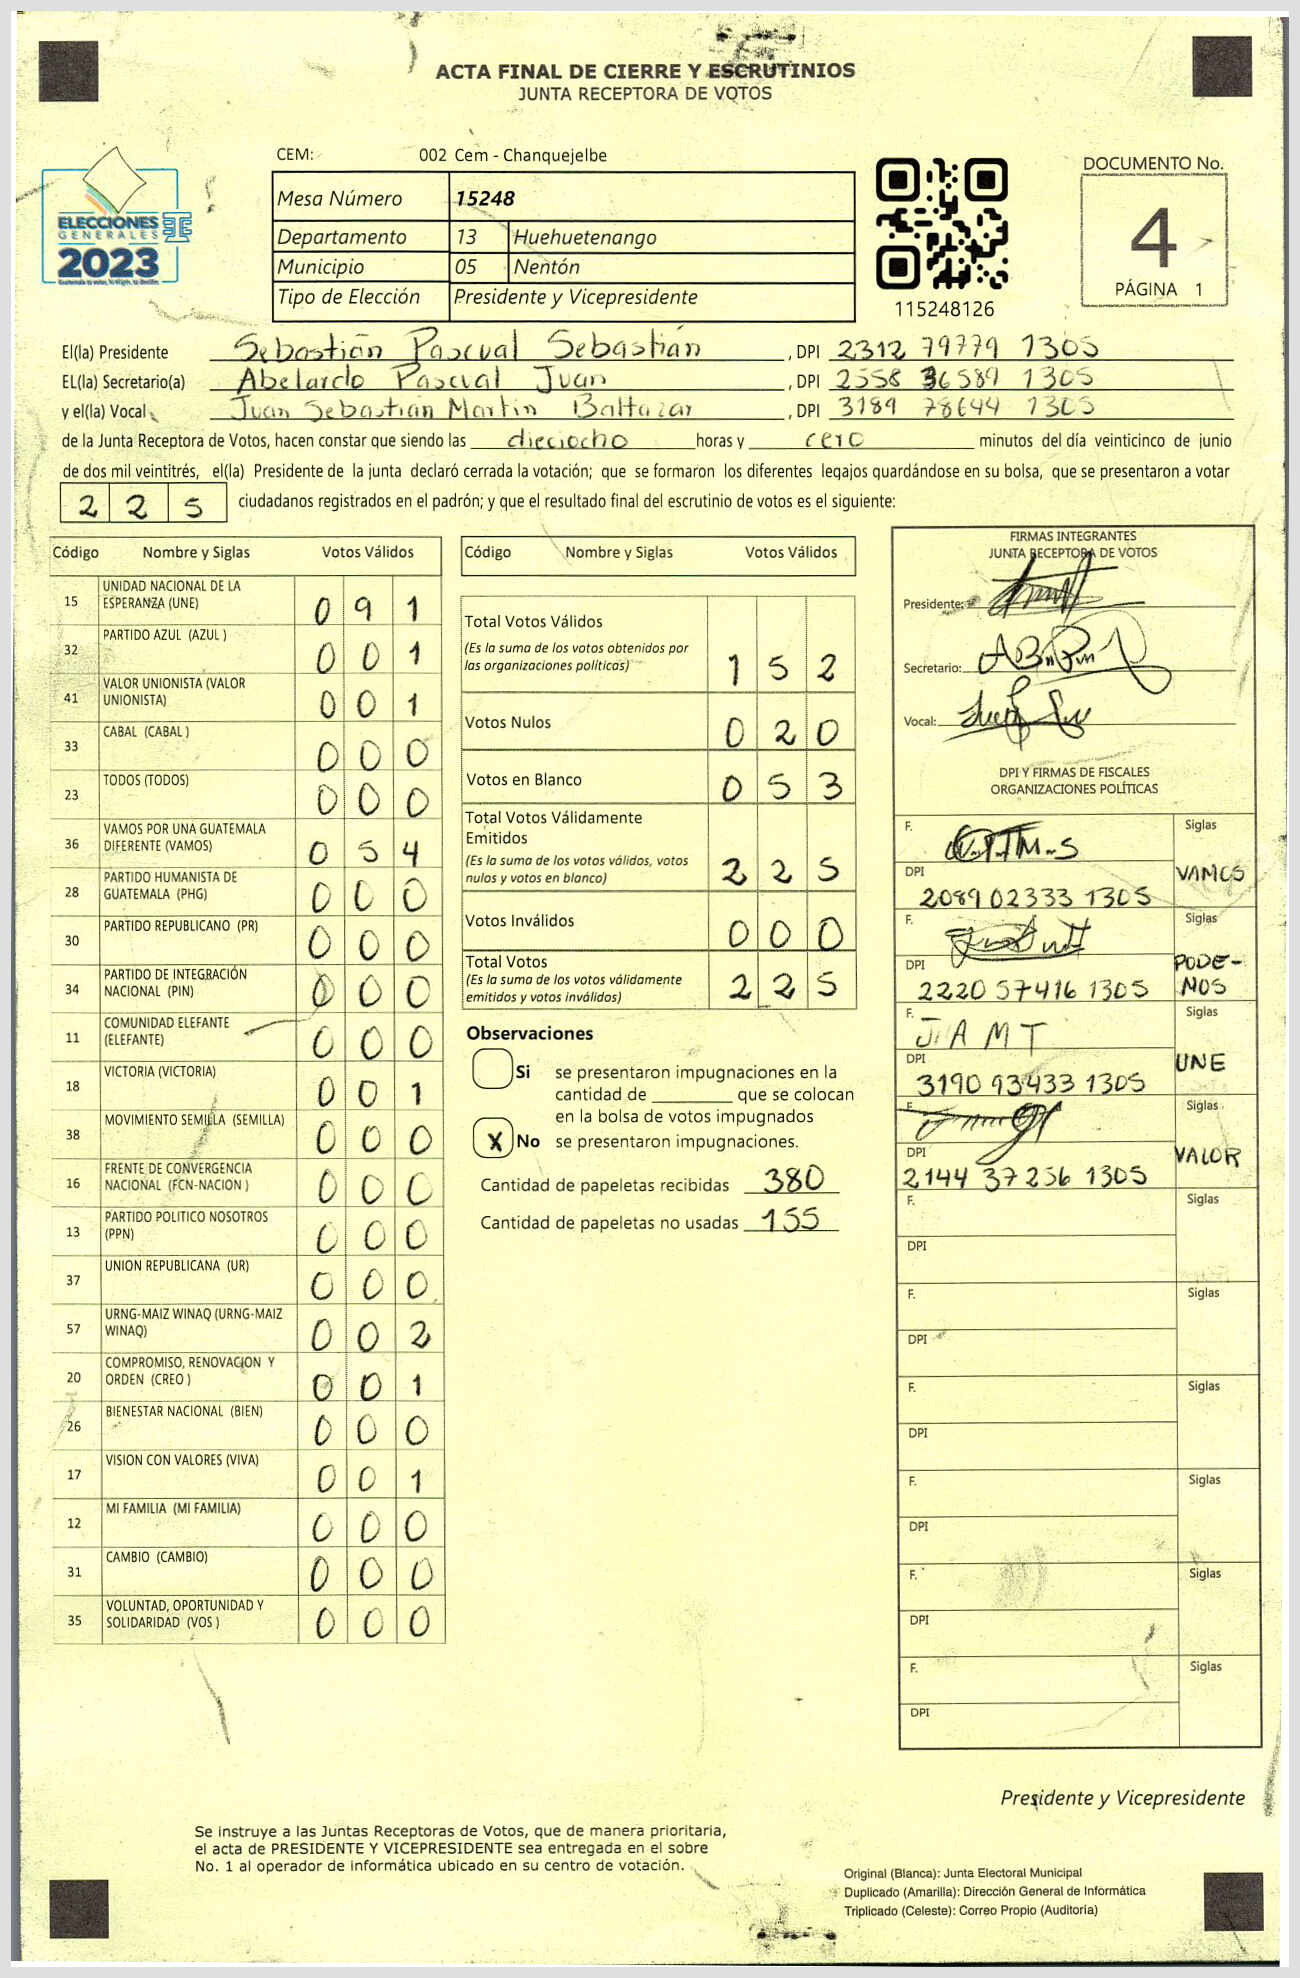 ACTA FINAL DE CIERRE Y ESCRUTINIOS
JUNTA RECEPTORA DE VOTOS
ELECCIONES
GENERALES
2023
CEM: 002 Cem - Chanquejelbe
Mesa Número 15248
Departamento 13 Huehuetenango
Municipio 05 Nentón
Tipo de Elección Presidente y Vicepresidente
115248126
DOCUMENTO No.
4
PÁGINA 1
El(la) Presidente Sebastián Pascual Sebastián , DPI 2312 79779 1305
EL(la) Secretario(a) Abelardo Pascual Juan , DPI 2558 36589 1305
y el(la) Vocal Juan Sebastián Martin Baltazar , DPI 3189 78644 1305
de la Junta Receptora de Votos, hacen constar que siendo las dieciocho horas y cero minutos del día veinticinco de junio
de dos mil veintitrés, el(la) Presidente de la junta declaró cerrada la votación; que se formaron los diferentes legajos quardándose en su bolsa, que se presentaron a votar
2 2 5 ciudadanos registrados en el padrón; y que el resultado final del escrutinio de votos es el siguiente:
Código Nombre y Siglas Votos Válidos
15 UNIDAD NACIONAL DE LA ESPERANZA (UNE) 0 9 1
32 PARTIDO AZUL (AZUL ) 0 0 1
41 VALOR UNIONISTA (VALOR UNIONISTA) 0 0 1
33 CABAL (CABAL ) 0 0 0
23 TODOS (TODOS) 0 0 0
36 VAMOS POR UNA GUATEMALA DIFERENTE (VAMOS) 0 5 4
28 PARTIDO HUMANISTA DE GUATEMALA (PHG) 0 0 0
30 PARTIDO REPUBLICANO (PR) 0 0 0
34 PARTIDO DE INTEGRACIÓN NACIONAL (PIN) 0 0 0
11 COMUNIDAD ELEFANTE (ELEFANTE) 0 0 0
18 VICTORIA (VICTORIA) 0 0 1
38 MOVIMIENTO SEMILLA (SEMILLA) 0 0 0
16 FRENTE DE CONVERGENCIA NACIONAL (FCN-NACION ) 0 0 0
13 PARTIDO POLITICO NOSOTROS (PPN) 0 0 0
37 UNION REPUBLICANA (UR) 0 0 0
57 URNG-MAIZ WINAQ (URNG-MAIZ WINAQ) 0 0 2
20 COMPROMISO, RENOVACION Y ORDEN (CREO ) 0 0 1
26 BIENESTAR NACIONAL (BIEN) 0 0 0
17 VISION CON VALORES (VIVA) 0 0 1
12 MI FAMILIA (MI FAMILIA) 0 0 0
31 CAMBIO (CAMBIO) 0 0 0
35 VOLUNTAD, OPORTUNIDAD Y SOLIDARIDAD (VOS ) 0 0 0
Código Nombre y Siglas Votos Válidos
Total Votos Válidos
(Es la suma de los votos obtenidos por
las organizaciones políticas) 1 5 2
Votos Nulos 0 2 0
Votos en Blanco 0 5 3
Total Votos Válidamente
Emitidos
(Es la suma de los votos válidos, votos
nulos y votos en blanco) 2 2 5
Votos Inválidos 0 0 0
Total Votos
(Es la suma de los votos válidamente
emitidos y votos inválidos) 2 2 5
Observaciones
Si se presentaron impugnaciones en la
cantidad de ________ que se colocan
en la bolsa de votos impugnados
X No se presentaron impugnaciones.
Cantidad de papeletas recibidas 380
Cantidad de papeletas no usadas 155
FIRMAS INTEGRANTES
JUNTA RECEPTORA DE VOTOS
Presidente:
Secretario:
Vocal:
DPI Y FIRMAS DE FISCALES
ORGANIZACIONES POLÍTICAS
F. Siglas
DPI VAMOS
2089 02333 1305
F. Siglas
DPI PODE-
2220 57416 1305 MOS
F. J. A M T Siglas
DPI UNE
3190 93433 1305
F. Siglas
DPI VALOR
2144 37256 1305
F. Siglas
DPI
F. Siglas
DPI
F. Siglas
DPI
F. Siglas
DPI
F. Siglas
DPI
F. Siglas
DPI
Presidente y Vicepresidente
Se instruye a las Juntas Receptoras de Votos, que de manera prioritaria,
el acta de PRESIDENTE Y VICEPRESIDENTE sea entregada en el sobre
No. 1 al operador de informática ubicado en su centro de votación.
Original (Blanca): Junta Electoral Municipal
Duplicado (Amarilla): Dirección General de Informática
Triplicado (Celeste): Correo Propio (Auditoría)